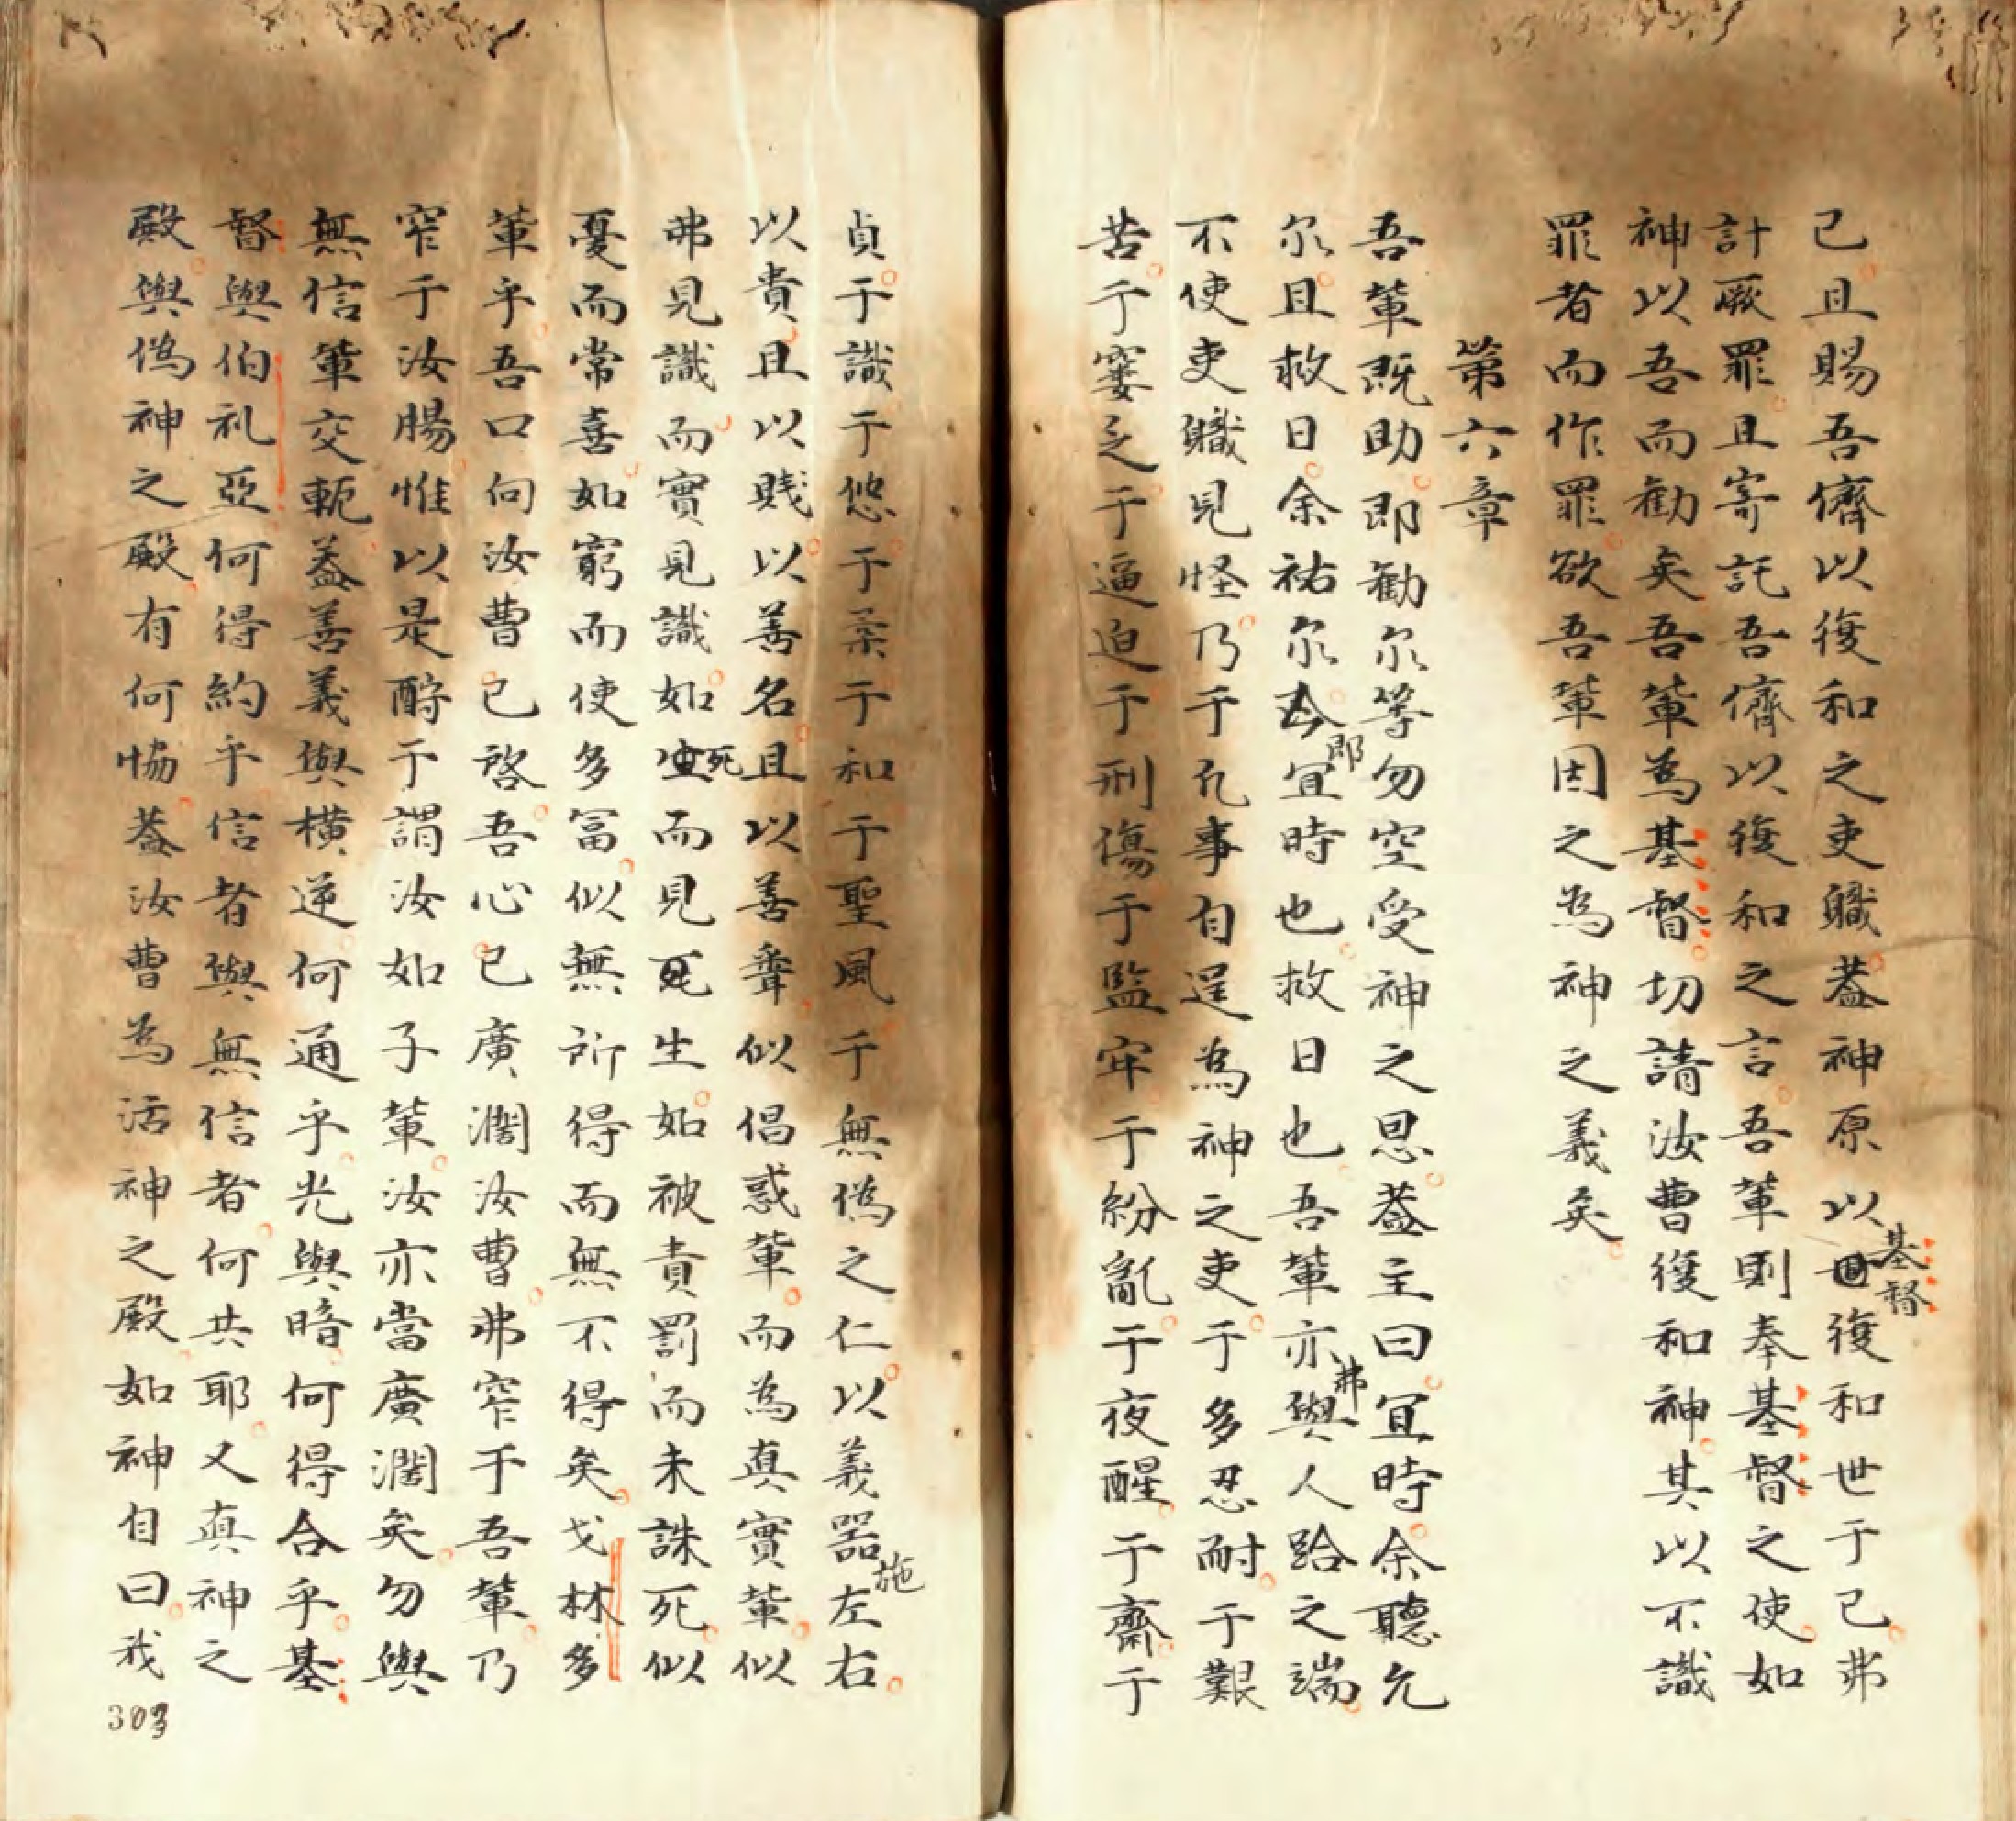 己且賜吾儕以復和之吏職蓋神原以基督復和世于己弗
計厥罪且寄託吾儕以復和之言吾輩則奉基督之使如
神以吾而勸矣吾輩為基督切請汝曹復和神其以不識
罪者而作罪欲吾輩因之為神之義矣
第六章
吾輩既助即勸尔等勿空受神之恩蓋主曰宜時余聽允
尔且救日余祐尔今即宜時也救日也吾輩亦弗與人跲之端
不使吏職見怪乃于凡事自逞為神之吏于多忍耐于艱
苦于窶乏于逼迫于刑傷于監牢于紛亂于夜醒于齋于
貞于識于悠于柔于和于聖風于無偽之仁以義器施左右
以貴且以賤以善名且以善聲似倡惑輩而為真實輩似
弗見識而實見識如死而見生如被責罰而未誅死似
憂而常喜如窮而使多冨似無所得而無不得矣戈林多
輩乎吾口向汝曹已啓吾心已廣濶汝曹弗窄于吾輩乃
窄于汝腸惟以是酹于謂汝如子輩汝亦當廣濶矣勿與
無信輩交軛蓋善義與橫逆何通乎光與暗何得合乎基
督與伯礼亞何得約乎信者與無信者何共耶又真神之
殿與偽神之殿有何恊蓋汝曹為活神之殿如神自曰我
303